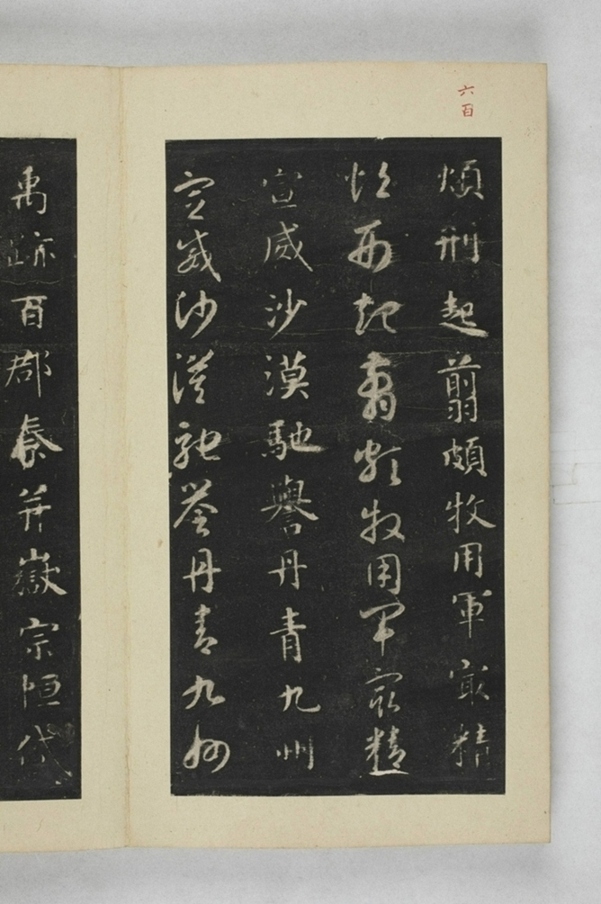 六百
煩刑起翦頗牧用軍㝡精
煩刑起翦頗牧用軍㝡精
宣威沙漠馳譽丹青九州
宣威沙漠馳譽丹青九州
禹跡百郡秦并嶽宗恒岱